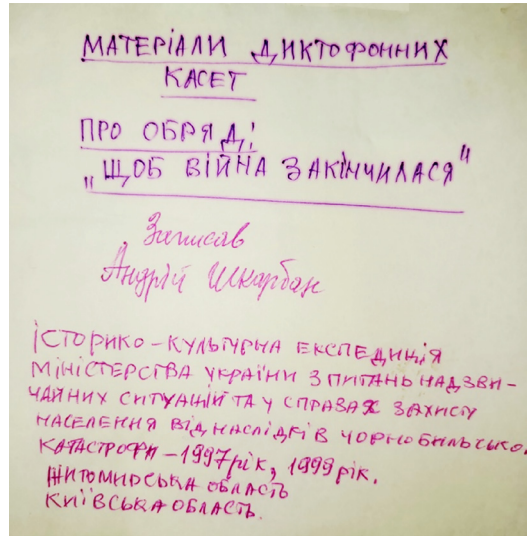 МАТЕРІАЛИ ДИКТОФОННИХ
КАСЕТ
ПРО ОБРЯД:
„ЩОБ ВІЙНА ЗАКІНЧИЛАСЯ"
Записав
Андрій Шкарбан
ІСТОРИКО-КУЛЬТУРНА ЕКСПЕДИЦІЯ
МІНІСТЕРСТВА УКРАЇНИ З ПИТАНЬ НАДЗВИ-
ЧАЙНИХ СИТУАЦІЙ ТА У СПРАВАХ ЗАХИСТУ
НАСЕЛЕННЯ ВІД НАСЛІДКІВ ЧОРНОБИЛЬСЬКО
КАТАСТРОФИ – 1997 рік, 1999 рік.
ЖИТОМИРСЬКА ОБЛАСТЬ
КИЇВСЬКА ОБЛАСТЬ.